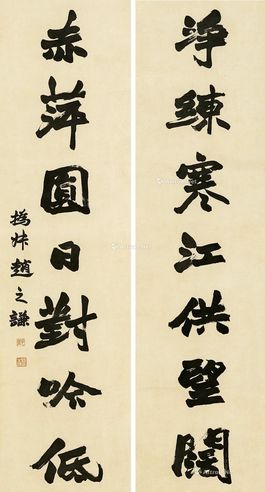 淨練寒江供望闊
赤萍圓日對吟低
撝叔趙之謙